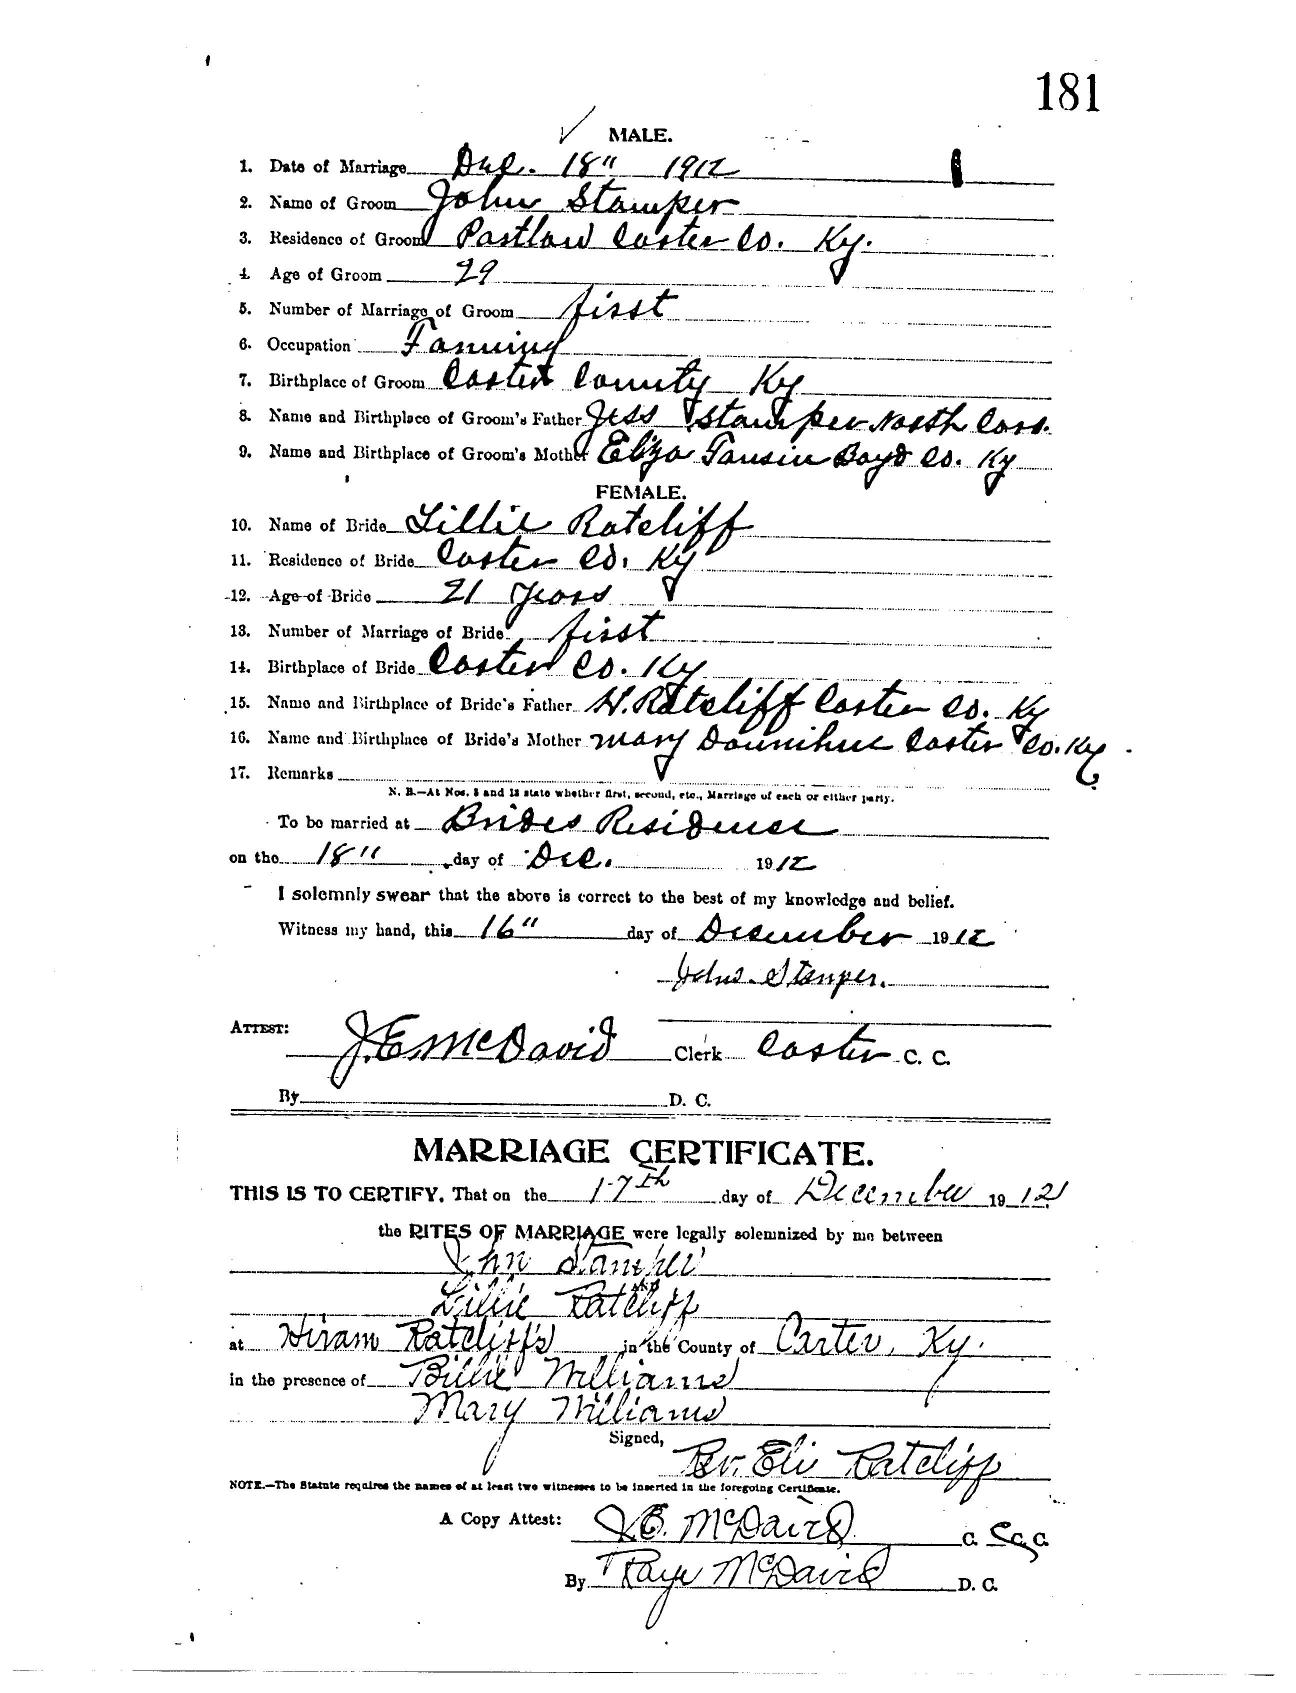 181
MALE.
1. Date of Marriage Dec. 18" 1912
2. Name of Groom John Stamper
3. Residence of Groom Carter Co. Ky.
4. Age of Groom 29
5. Number of Marriage of Groom first
6. Occupation Farming
7. Birthplace of Groom Carter County Ky
8. Name and Birthplace of Groom's Father Jess Stamper North Caro.
9. Name and Birthplace of Groom's Mother Eliza Boyd Co. Ky
FEMALE.
10. Name of Bride Lillie Ratcliff
11. Residence of Bride Carter Co. Ky
12. Age of Bride 21 Years
13. Number of Marriage of Bride first
14. Birthplace of Bride Carter Co. Ky
15. Name and Birthplace of Bride's Father H. Ratcliff Carter Co. Ky
16. Name and Birthplace of Bride's Mother Mary Carter Co. Ky
17. Remarks
N. B.—At Nos. 5 and 13 state whether first, second, etc., Marriage of each or either party.
To be married at Brides Residence
on the 18" day of Dec. 1912
I solemnly swear that the above is correct to the best of my knowledge and belief.
Witness my hand, this 16" day of December 1912
John Stamper.
ATTEST: J.E. McDavid Clerk Carter C. C.
By D. C.
MARRIAGE CERTIFICATE.
THIS IS TO CERTIFY, That on the 17th day of December 1912
the RITES OF MARRIAGE were legally solemnized by me between
John Stamper
AND
Lillie Ratcliff
at Hiram Ratcliff's in the County of Carter, Ky.
in the presence of Billie Williams
Mary Williams
Signed, Rev. Eli Ratcliff
NOTE.—The Statute requires the names of at least two witnesses to be inserted in the foregoing Certificate.
A Copy Attest: J.E. McDavid C. C. C.
By Raye McDavid D. C.